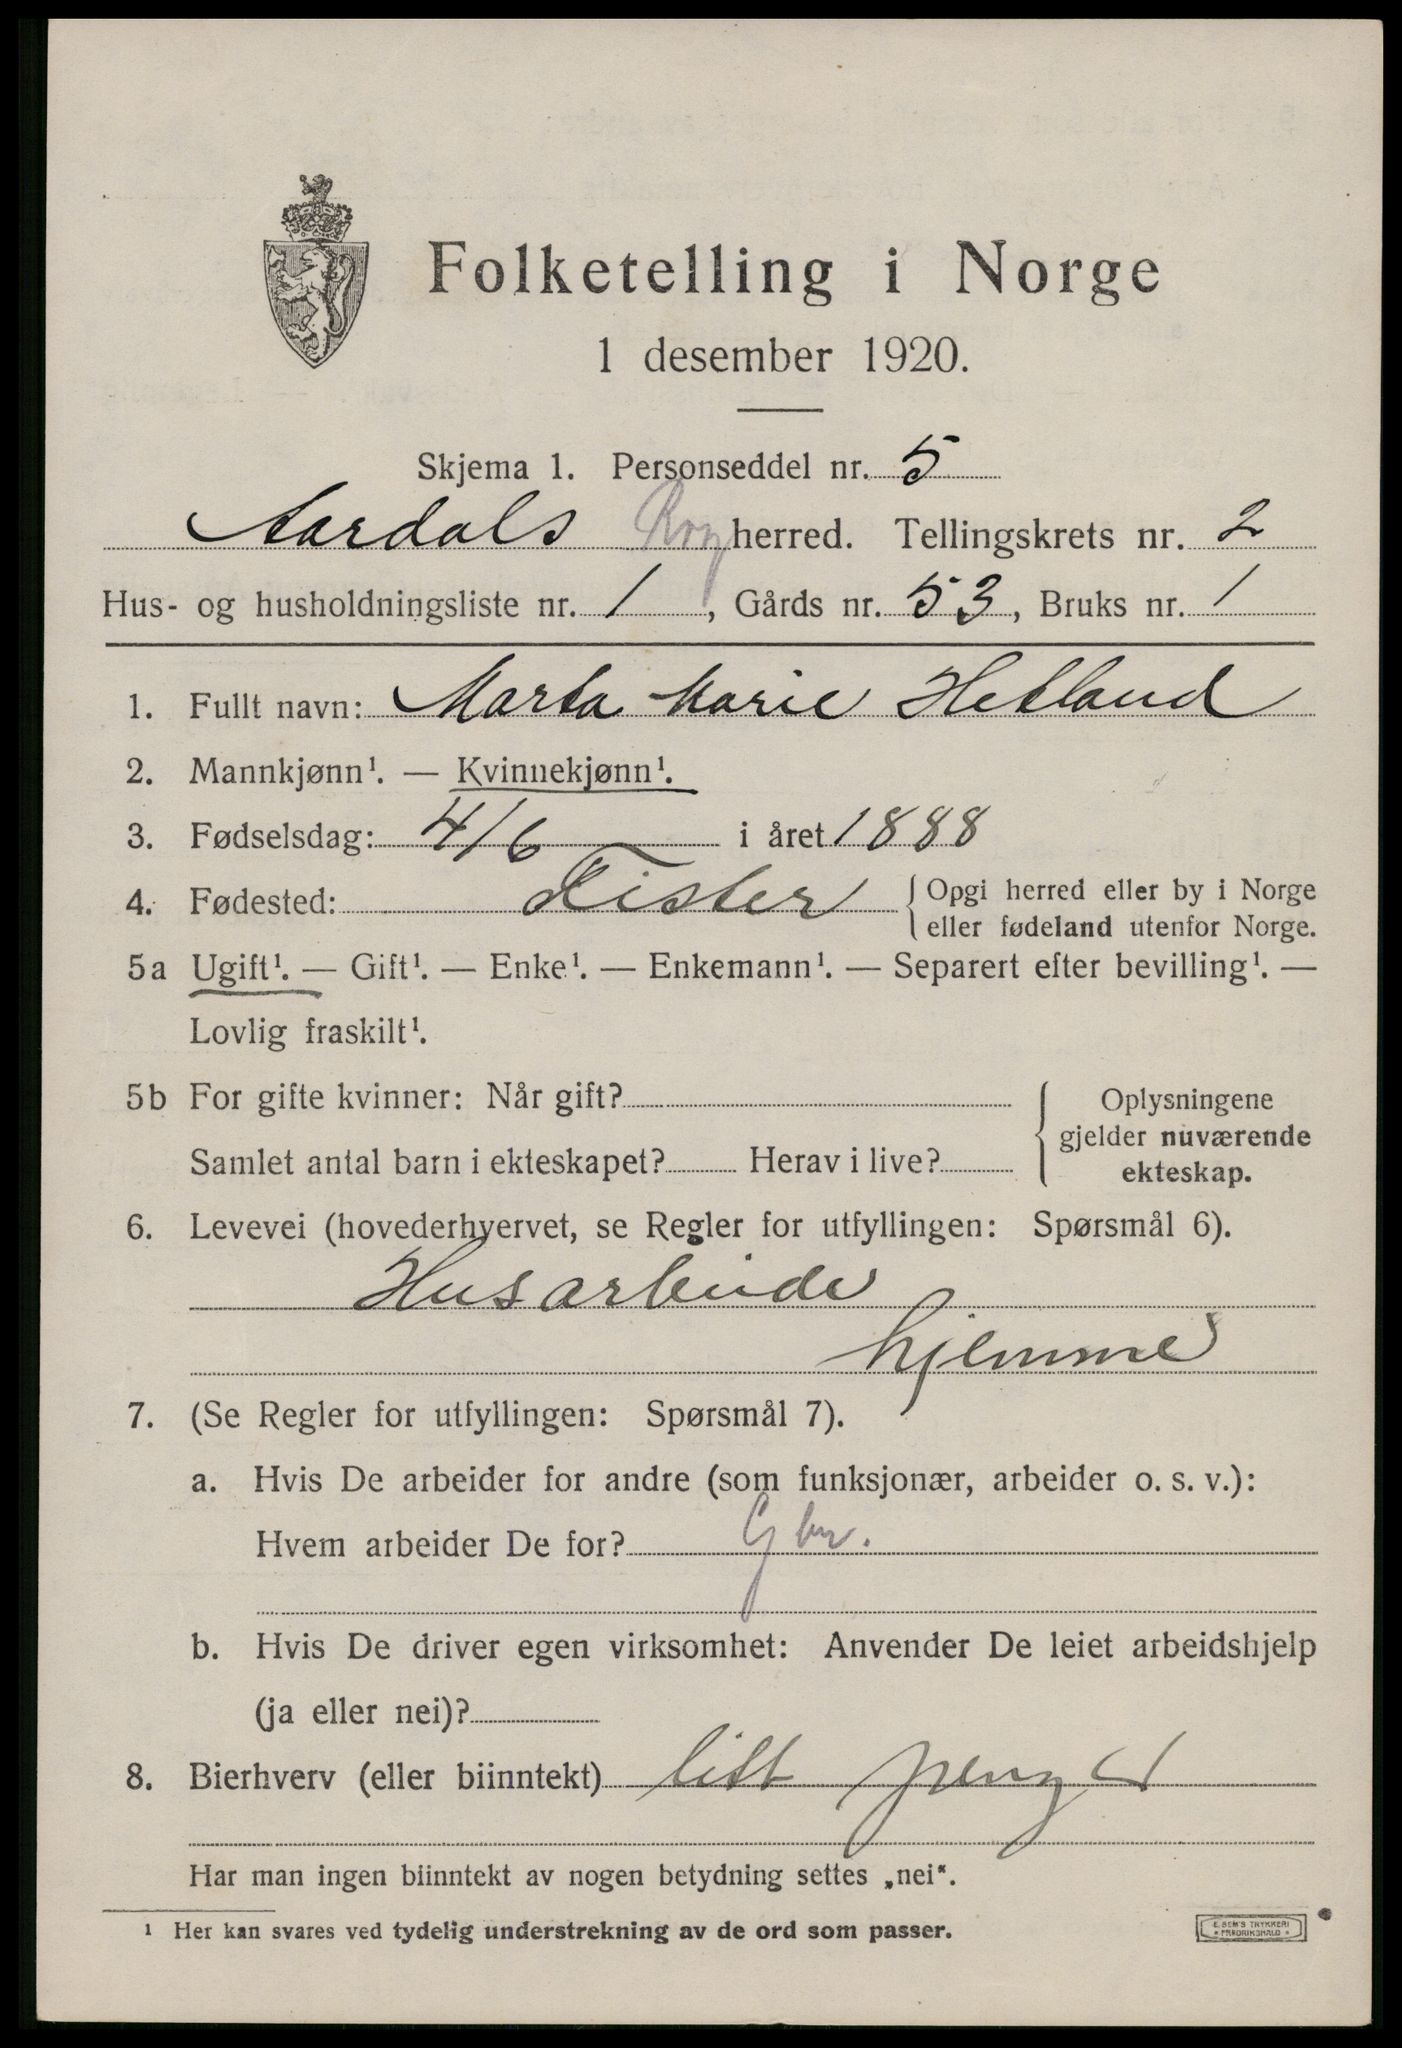 Folketelling i Norge
1 desember 1920.
Skjema 1. Personseddel nr. 5
Aardals Rog herred. Tellingskrets nr. 2
Hus- og husholdningsliste nr. 1, Gårds nr. 53, Bruks nr. 1
1. Fullt navn: Marta Marie Hetland
2. Mannkjønn¹. — Kvinnekjønn¹.
3. Fødselsdag: 4/6 i året 1888
4. Fødested: Fister { Opgi herred eller by i Norge
eller fødeland utenfor Norge.
5a Ugift¹. — Gift¹. — Enke¹. — Enkemann¹. — Separert efter bevilling¹. —
Lovlig fraskilt¹.
5b For gifte kvinner: Når gift? { Oplysningene
gjelder nuværende
Samlet antal barn i ekteskapet? Herav i live?
ekteskap.
6. Levevei (hovederhvervet, se Regler for utfyllingen: Spørsmål 6).
Husarbeide
hjemme
7. (Se Regler for utfyllingen: Spørsmål 7).
a. Hvis De arbeider for andre (som funksjonær, arbeider o. s. v.):
Hvem arbeider De for? Gbr.
b. Hvis De driver egen virksomhet: Anvender De leiet arbeidshjelp
(ja eller nei)?
8. Bierhverv (eller biinntekt) litt penger
Har man ingen biinntekt av nogen betydning settes „nei“.
¹ Her kan svares ved tydelig understrekning av de ord som passer.
E. SEM'S TRYKKERI
* FREDRIKSHALD *